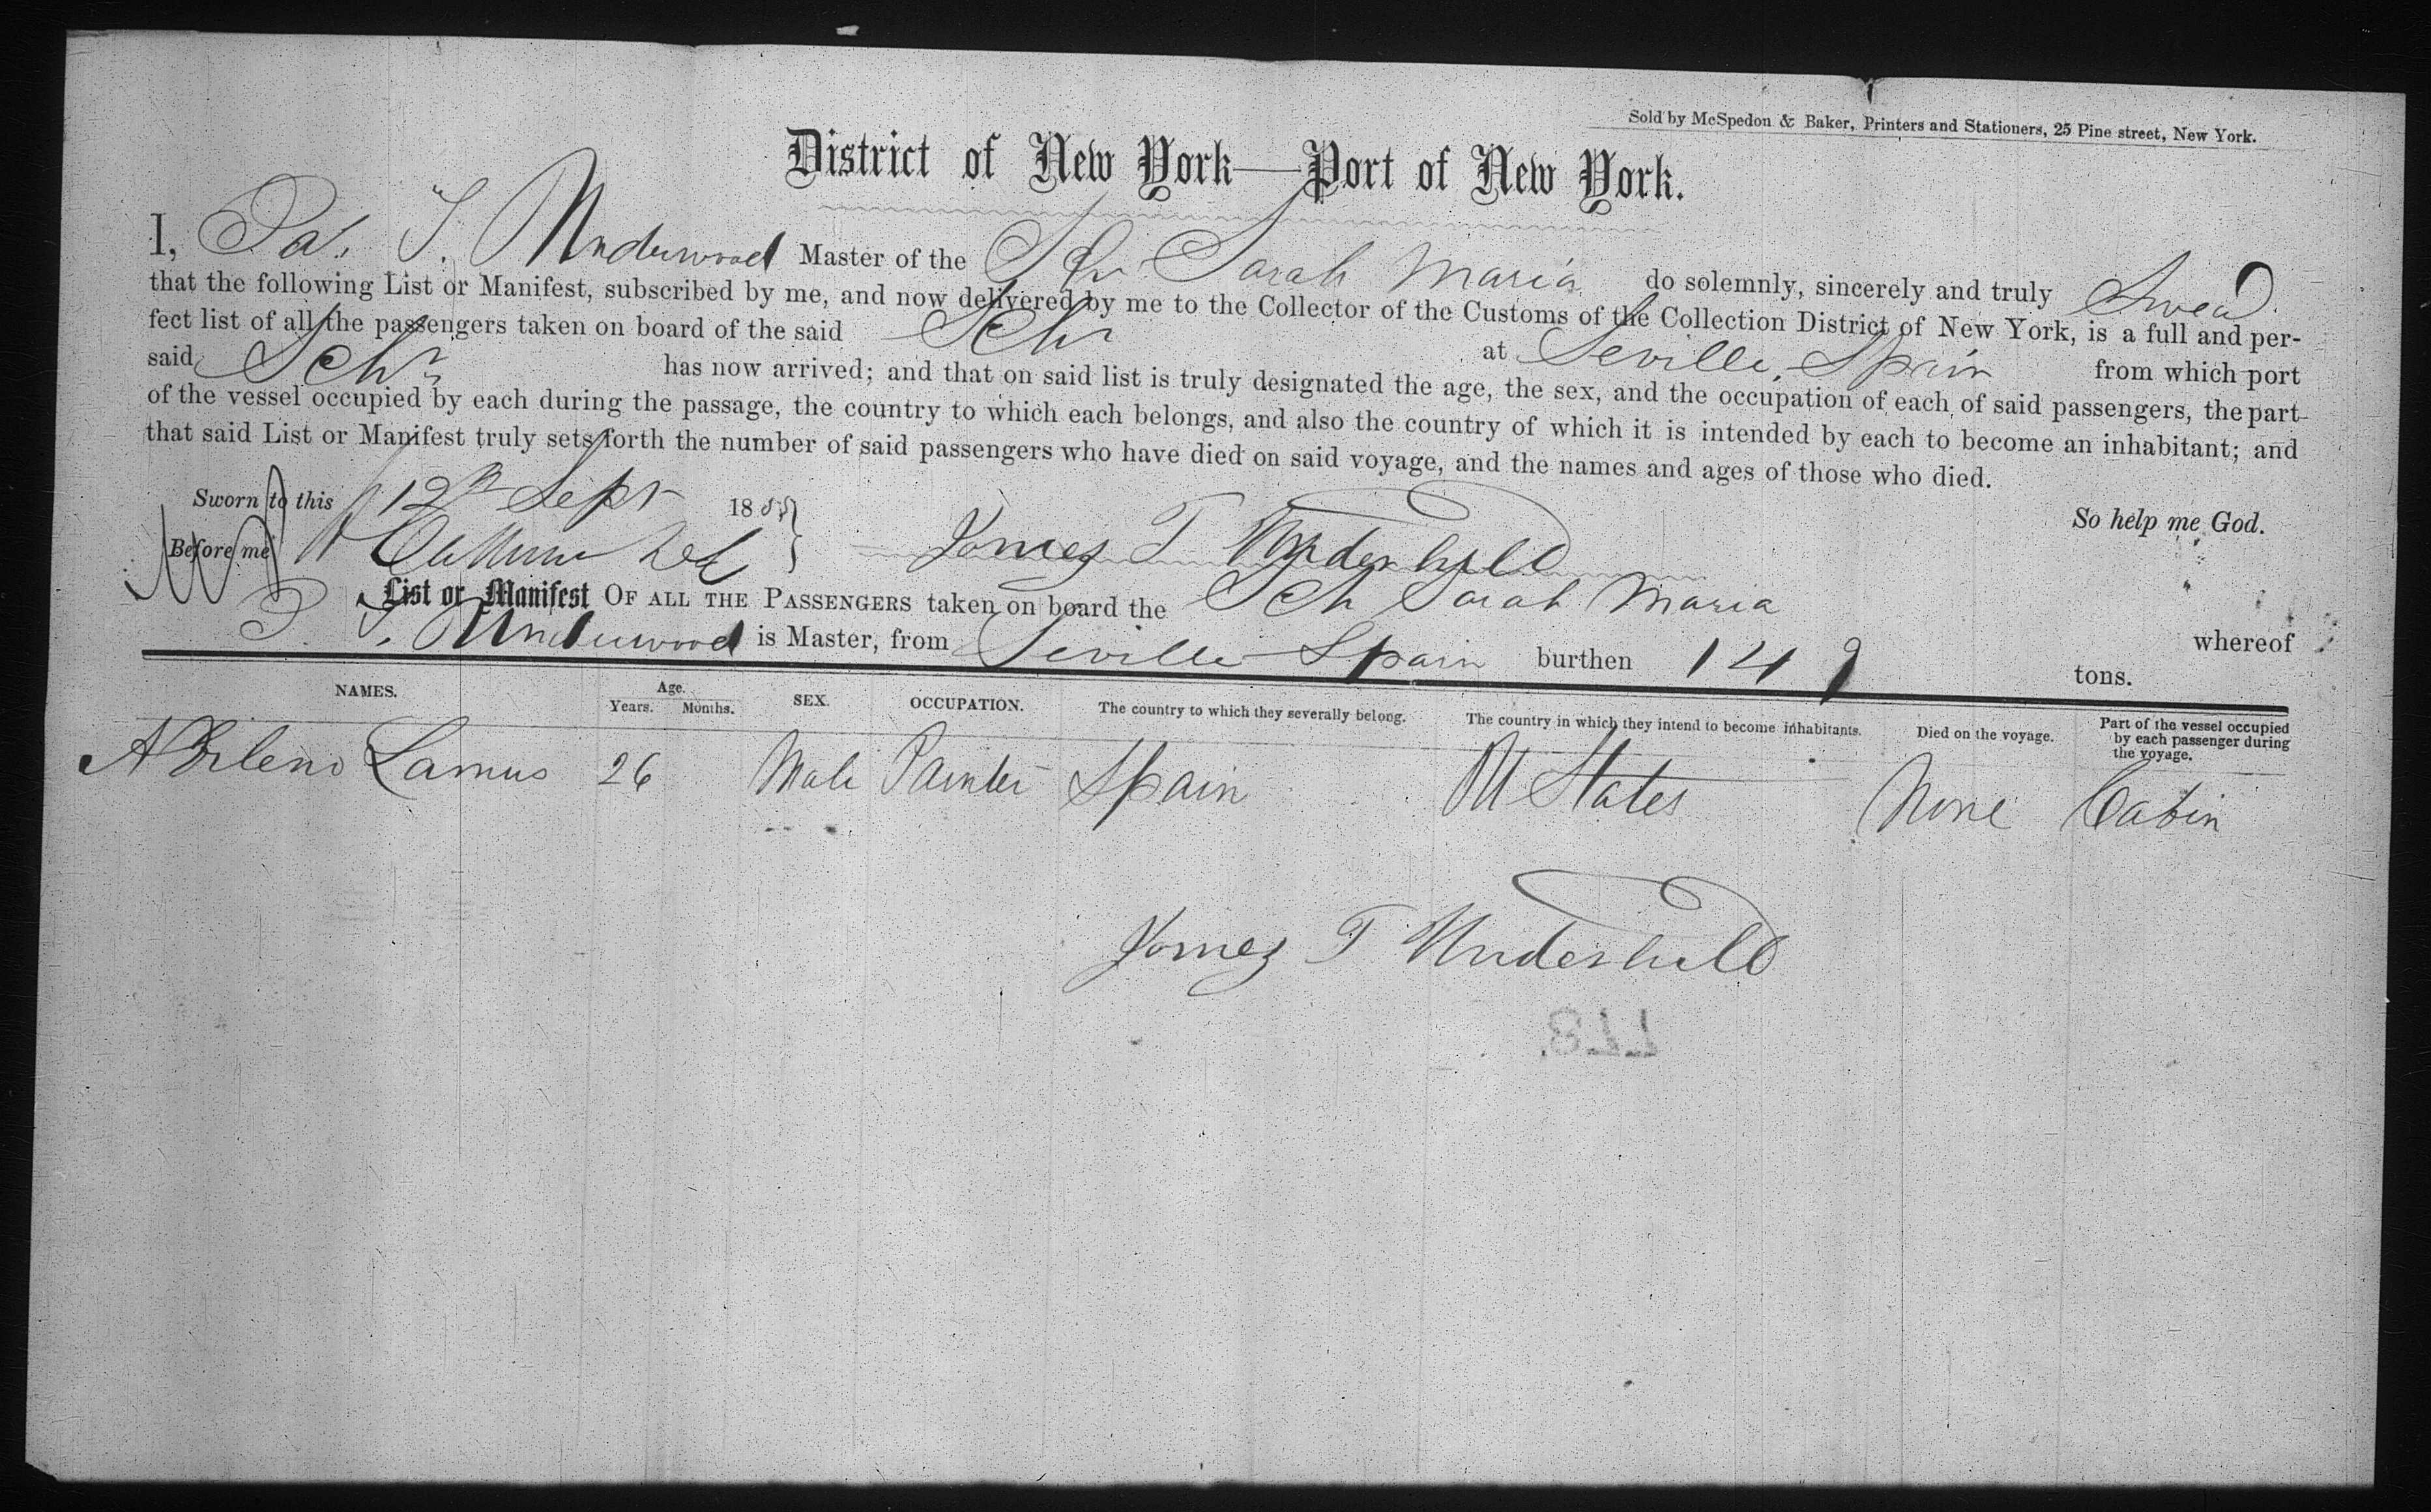 Sold by McSpedon & Baker, Printers and Stationers, 25 Pine street, New York.
District of New York—Port of New York.
I, T. Underwood Master of the Schr Sarah Maria do solemnly, sincerely and truly Swear
that the following List or Manifest, subscribed by me, and now delivered by me to the Collector of the Customs of the Collection District of New York, is a full and per-
fect list of all the passengers taken on board of the said Schr at Seville, Spain from which port
said Schr has now arrived; and that on said list is truly designated the age, the sex, and the occupation of each of said passengers, the part
of the vessel occupied by each during the passage, the country to which each belongs, and also the country of which it is intended by each to become an inhabitant; and
that said List or Manifest truly sets forth the number of said passengers who have died on said voyage, and the names and ages of those who died.
Sworn to this 12th Sept 1855 So help me God.
Before me James T Underhill
List or Manifest OF ALL THE PASSENGERS taken on board the Sch Sarah Maria whereof
T. Underwood is Master, from Seville Spain burthen 149 tons.
NAMES. Age. Years. Months. SEX. OCCUPATION. The country to which they severally belong. The country in which they intend to become inhabitants. Died on the voyage. Part of the vessel occupied by each passenger during the voyage.
Lamus 26 Male Painter Spain Ut States None Cabin
James T Underhill
877